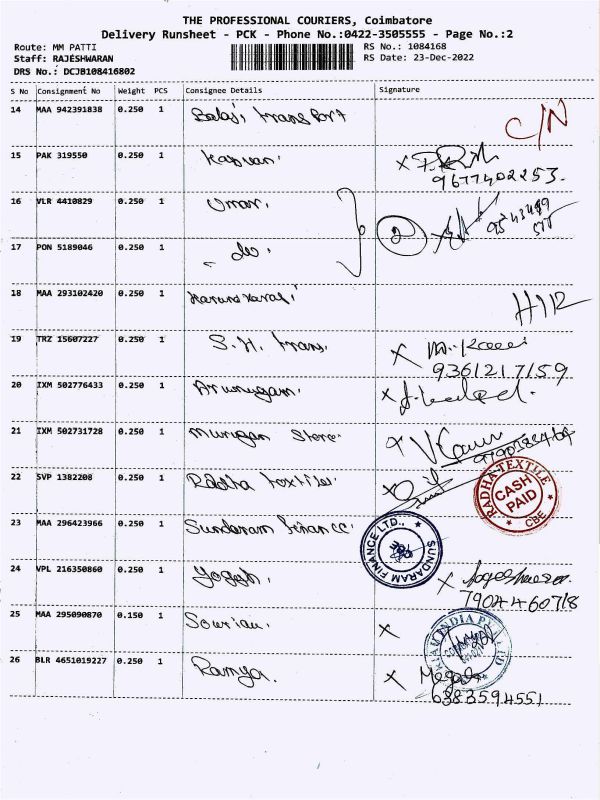 THE PROFESSIONAL COURIERS, Coimbatore
Delivery Runsheet - PCK - Phone No.:0422-3505555 - Page No.:2
Route: MM PATTI RS No.: 1084168
Staff: RAJESHWARAN RS Date: 23-Dec-2022
DRS No.: DCJB108416802
S No Consignment No Weight PCS Consignee Details Signature
14 MAA 942391838 0.250 1 Balaji transport C/N
15 PAK 319550 0.250 1
9677402253.
16 VLR 4410829 0.250 1 Umar. 2
17 PON 5189046 0.250 1 do.
18 MAA 293102420 0.250 1
19 TRZ 15607227 0.250 1 S.H. trans.
9361217159
20 IXM 502776433 0.250 1 Arumugam.
21 IXM 502731728 0.250 1 Murugan Store.
22 SVP 1382208 0.250 1 Radha textiles
RADHA TEXTILE
CASH
PAID
CBE
23 MAA 296423966 0.250 1 Sundaram finance.
SUNDARAM FINANCE LTD.,
24 VPL 216350860 0.250 1 Yogesh.
7904460718
25 MAA 295090870 0.150 1
26 BLR 4651019227 0.250 1 Ramya.
6383594551